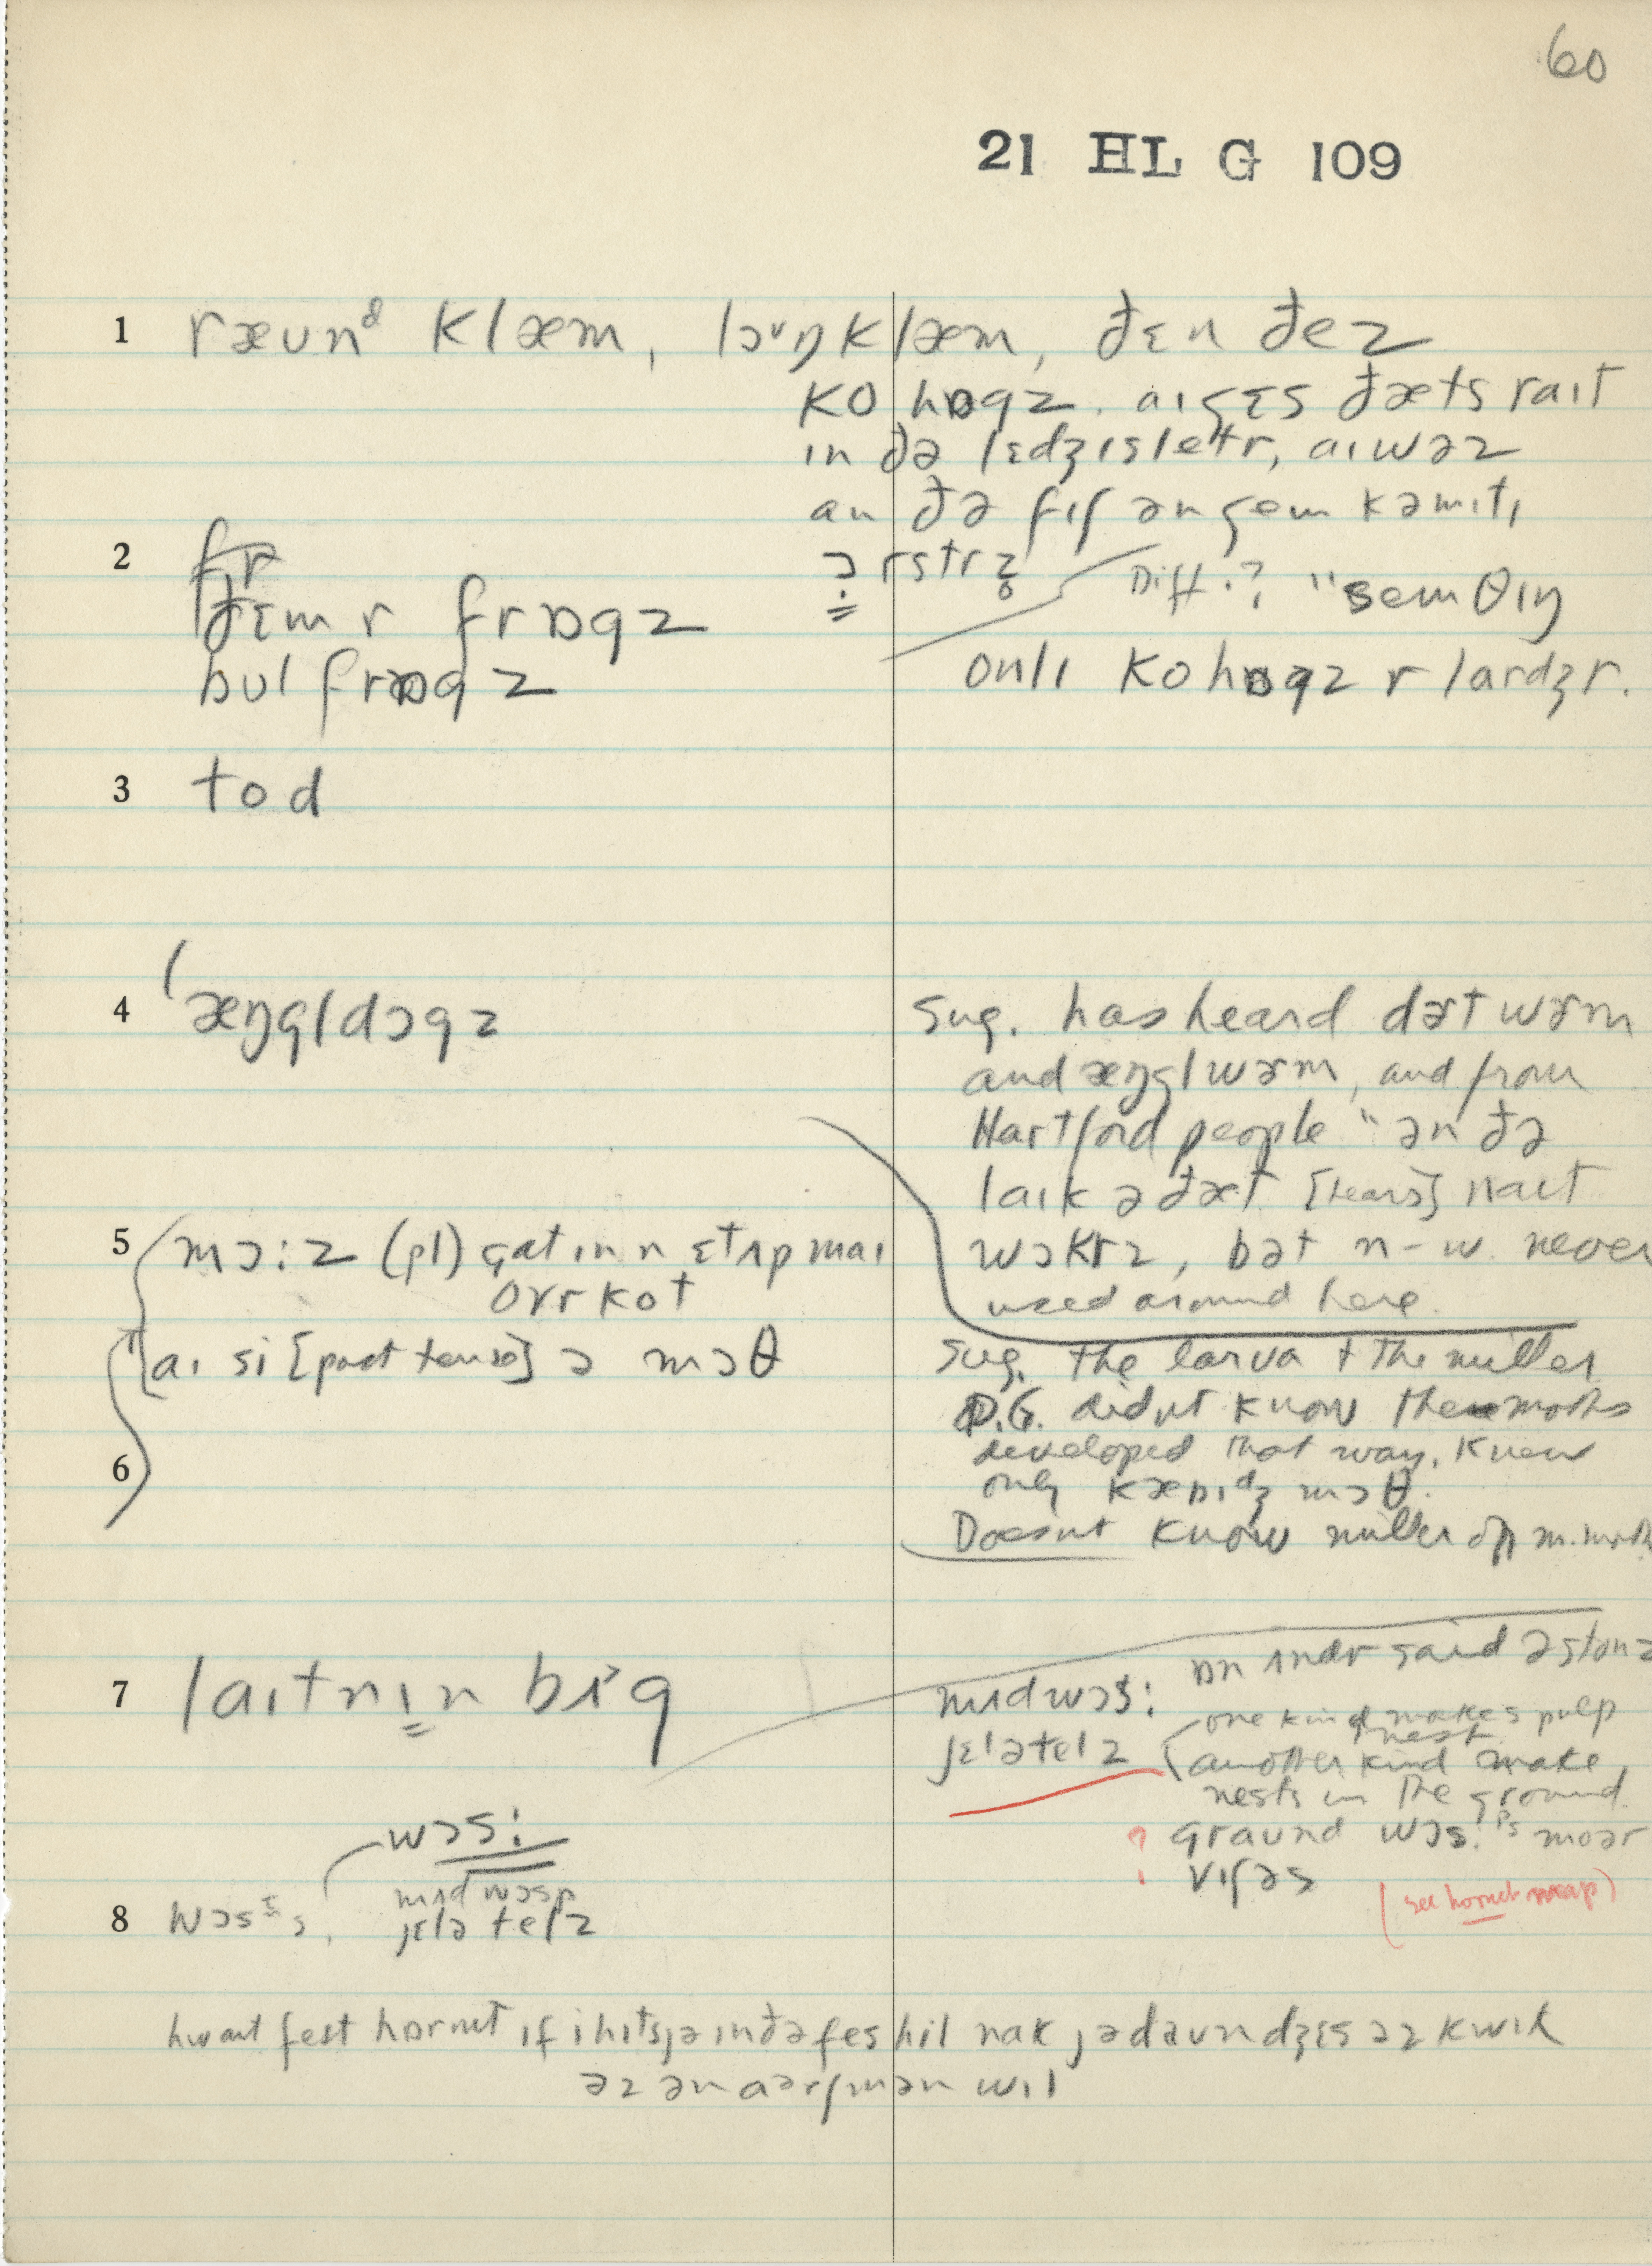 60
21 HL G 109
1 ræʊnᵈ klæm, lɔᵛŋ klæm, ðɛn ðez
ko hɒgz. aɪ gɛs ðæts raɪt
ɪn ðə lɛdʒɪsletr, aɪ wəz
an ðə fɪʃ ən gem kəmɪtɪ
ɔɪrstrz
2 fr
ðɛm r frɒgz
bul frɒgz
Diff.? "sem θɪŋ
onlɪ kohɒgz r lardʒr.
3 tod
4 æŋgldɔgz
sug. has heard dɚt wɚm
and æŋglwɚm, and from
Hartford people "ən ðə
laɪk ə ðæt [hears] naɪt
wɔkrz, bət n-w. never
used around here.
5 mɔ:z (pl) gat ɪn n ɛt ʌp maɪ
ovr kot
aɪ si [past tense] ə mɔθ
sug. the larva + the miller
D.G. didnt know the moths
developed that way, knew
only kæbɪdʒ mɔθ.
Doesnt know miller
6
7 laɪtnɪn bɪg
mʌd wɔs:
jɛlətelz
ɒn ʌndr said əstonz
one kind makes pulp
nest
another kind make
nests in the ground.
graund wɔs:ᵖˢ moər
vɪʃəs
(see hornet map)
wɔs:
mʌd wɔsp
8 wɔsᶦˢ, jɛlətelz
hwaɪt fest hɒrnɪt ɪf i hɪts jə ɪn ðə fes hil nak jə daʊn dʒɛs əz kwɪk
əz ən aərʃmən wɪl